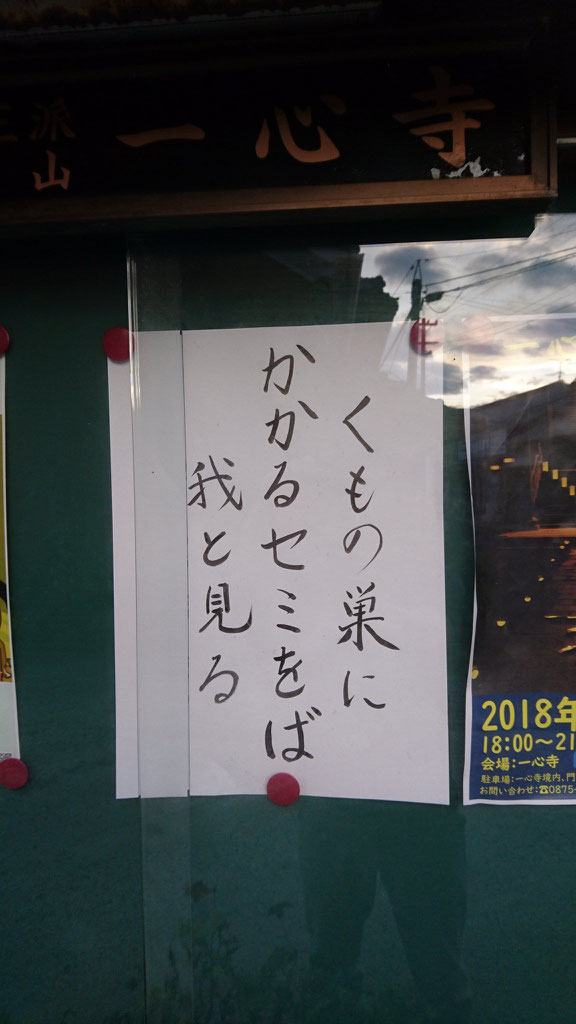 派山 一心寺
くもの巣に
かかるセミをば
我と見る
2018年
18:00〜21
会場:一心寺
駐車場:一心寺境内、門
お問い合わせ:☎0875-